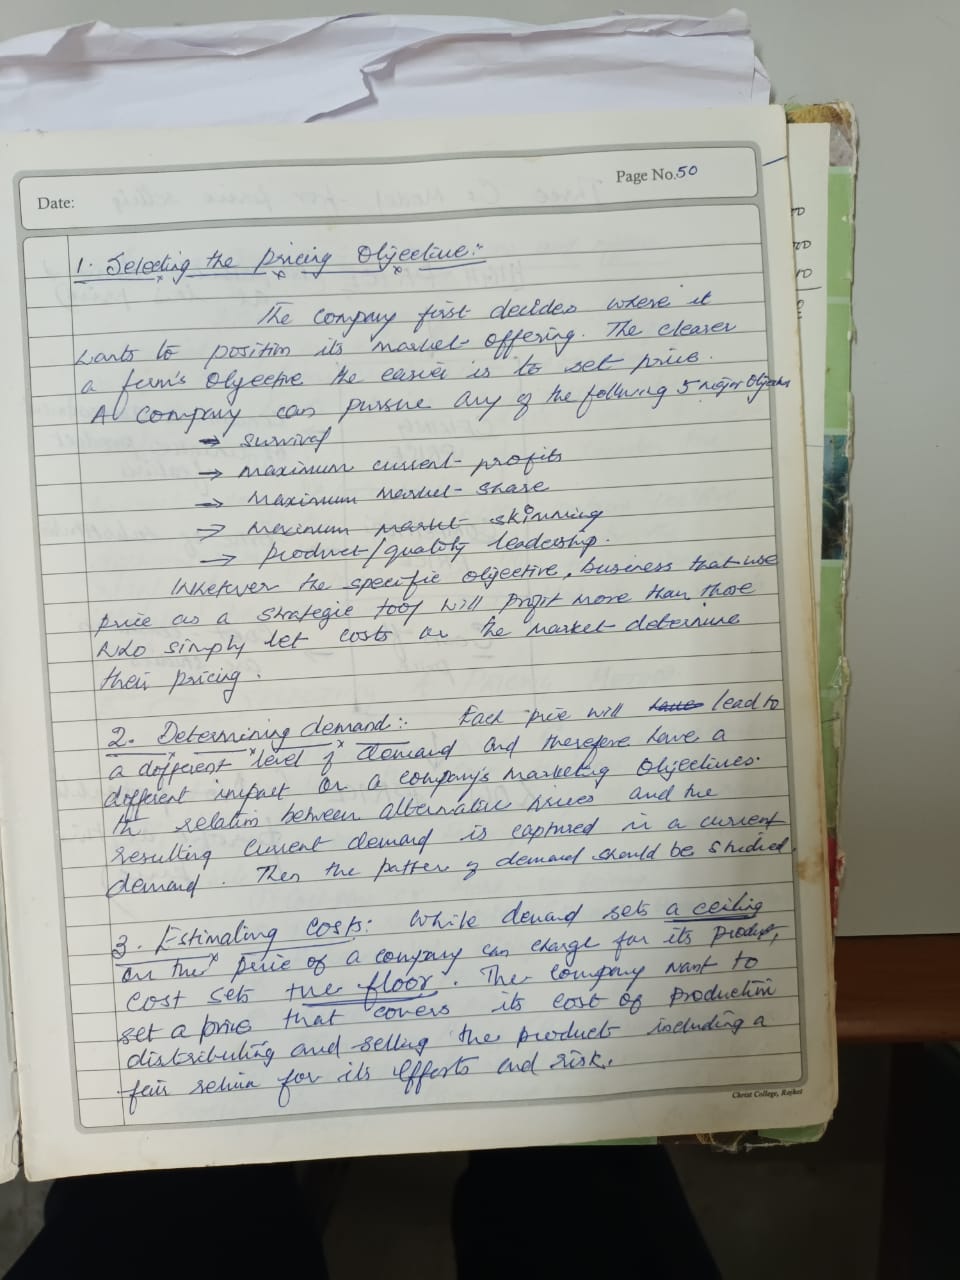 Page No.50
Date:
1. Selecting the pricing Objective:-
The company first decides where it
wants to position its market-offering. The clearer
a firm's objective the easier is to set price.
A company can pursue any of the following 5 major Objectives
→ survival
→ maximum current-profits
→ Maximum Market-share
→ Maximum market-skimming
→ product/quality leadership.
Whatever the specific objective, business that use
price as a strategic tool will profit more than those
who simply let costs or the market determine
their pricing.
2. Determining demand:- Each price will lead to
a different level of demand and therefore have a
different impact on a company's marketing Objectives.
th relation between alternative prices and the
resulting current demand is captured in a current
demand. Then the patter of demand should be studied.
3. Estimating Costs: While demand sets a ceiling
on the price of a company can charge for its product,
cost sets the floor. The company want to
set a price that covers its cost of production
distributing and selling the products including a
fair return for its efforts and risk.
Christ College, Rajkot